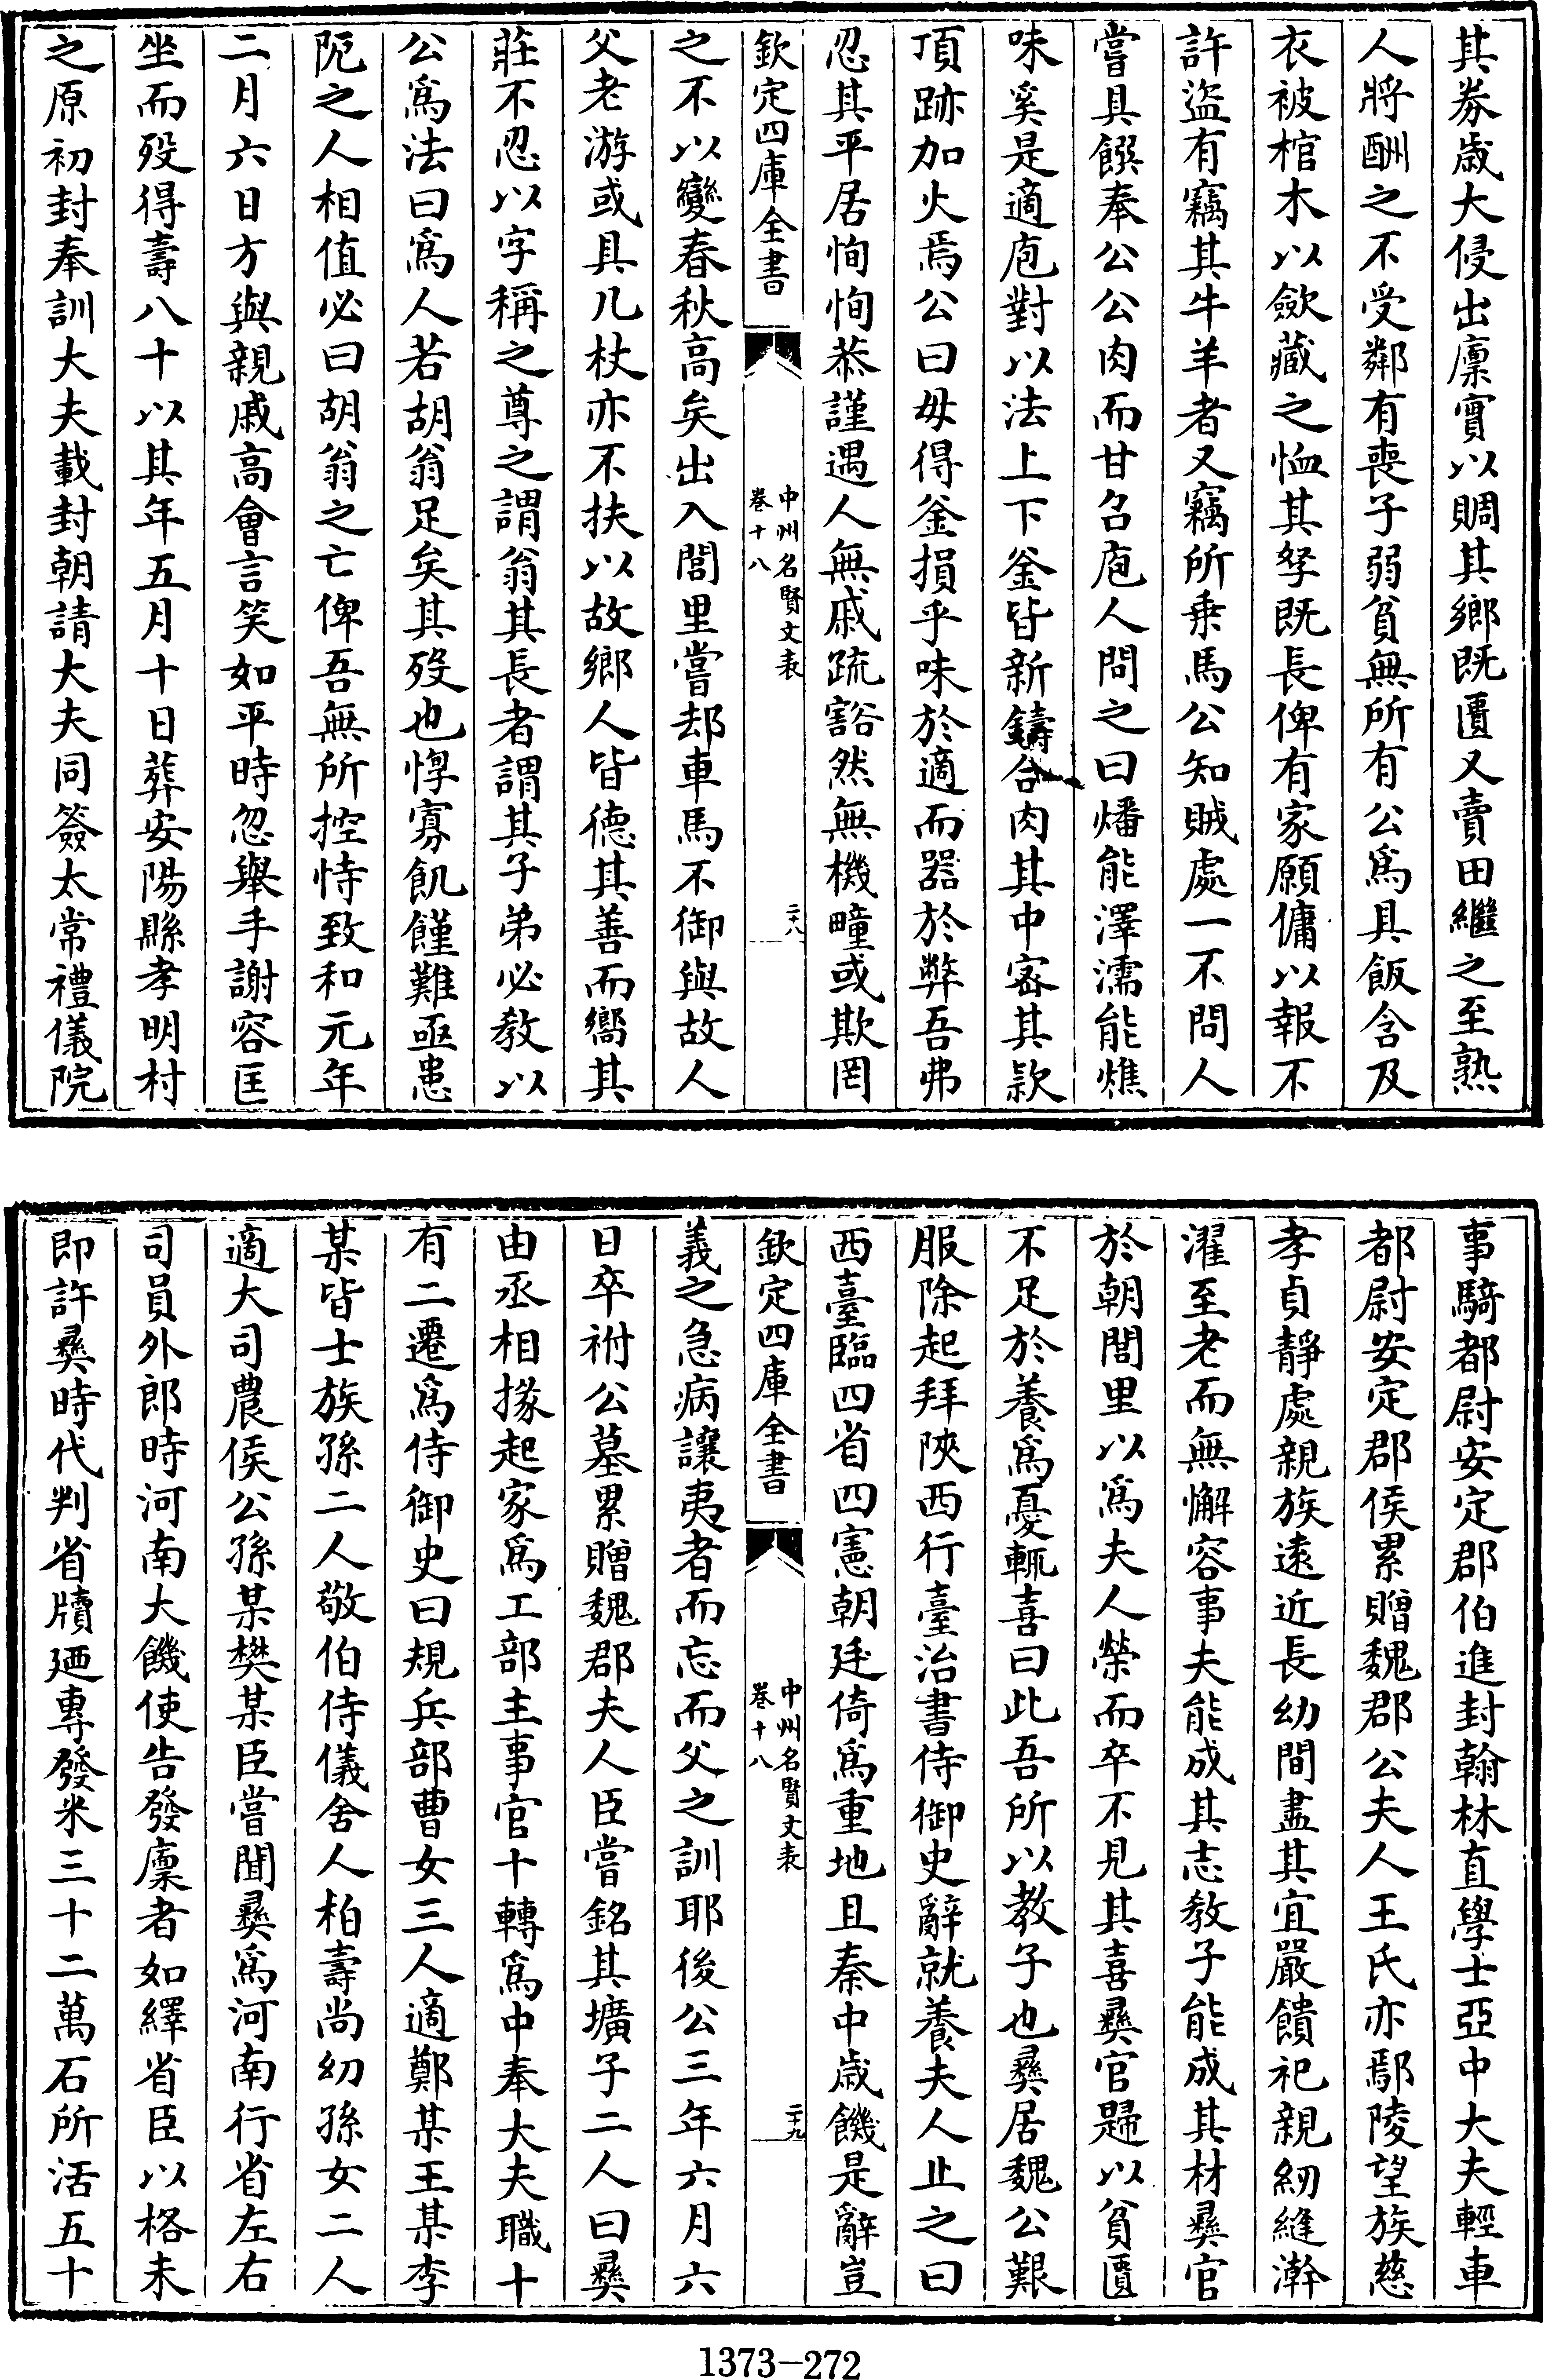 其券歲大侵出廩實以賙其鄉既匱又賣田繼之至熟
人將酬之不受鄰有喪子弱貧無所有公為具飯含及
衣被棺木以斂藏之恤其孥既長俾有家願傭以報不
許盜有竊其牛羊者又竊所乗馬公知賊處一不問人
嘗具饌奉公公肉而甘召庖人問之曰燔能澤濡能燋
味奚是適庖對以法上下釜皆新鑄合肉其中宻其款
頂跡加火焉公曰毋得釜損乎味於適而器於弊吾弗
忍其平居恂恂恭謹遇人無戚疏豁然無機疃或欺罔
欽定四庫全書
中州名賢文表
卷十八
二十八
之不以變春秋高矣出入閭里嘗却車馬不御與故人
父老游或具几杖亦不扶以故鄉人皆德其善而嚮其
莊不忍以字稱之尊之謂翁其長者謂其子弟必教以
公為法曰為人若胡翁足矣其歿也惸寡飢饉難亟患
阨之人相值必曰胡翁之亡俾吾無所控恃致和元年
二月六日方與親戚高會言笑如平時忽舉手謝容匡
坐而歿得壽八十以其年五月十日葬安陽縣孝明村
之原初封奉訓大夫載封朝請大夫同簽太常禮儀院
事騎都尉安定郡伯進封翰林直學士亞中大夫輕車
都尉安定郡侯累贈魏郡公夫人王氏亦鄢陵望族慈
孝貞靜處親族逺近長幼間盡其宜嚴饋祀親紉縫澣
濯至老而無懈容事夫能成其志教子能成其材彝官
於朝閭里以為夫人榮而卒不見其喜彝官歸以貧匱
不足於養為憂輒喜曰此吾所以教子也彝居魏公艱
服除起拜陜西行臺治書侍御史辭就養夫人止之曰
西臺臨四省四憲朝廷倚為重地且秦中歲饑是辭豈
欽定四庫全書
中州名賢文表
卷十八
二十九
義之急病讓夷者而忘而父之訓耶後公三年六月六
日卒祔公墓累贈魏郡夫人臣嘗銘其壙子二人曰彝
由丞相掾起家為工部主事官十轉為中奉大夫職十
有二遷為侍御史曰規兵部曹女三人適鄭某王某李
某皆士族孫二人敬伯侍儀舍人柏壽尚幼孫女二人
適大司農侯公孫某樊某臣嘗聞彝為河南行省左右
司員外郎時河南大饑使告發廩者如繹省臣以格未
即許彝時代判省牘廼專發米三十二萬石所活五十
1373-272